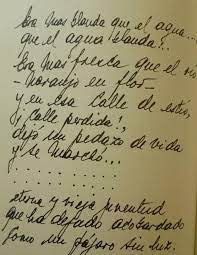 Era mas blanda que el agua...
que el agua blanda!..
Era mas fresca que el río
- naranjo en flor -
y en esa calle de estío,
¡calle perdida!,
dejó un pedazo de vida
y se marchó...
. . . . . . . . . .
. . . . . . . . . .
eterna y vieja juventud
que ha dejado acobardado
como un pájaro sin luz.